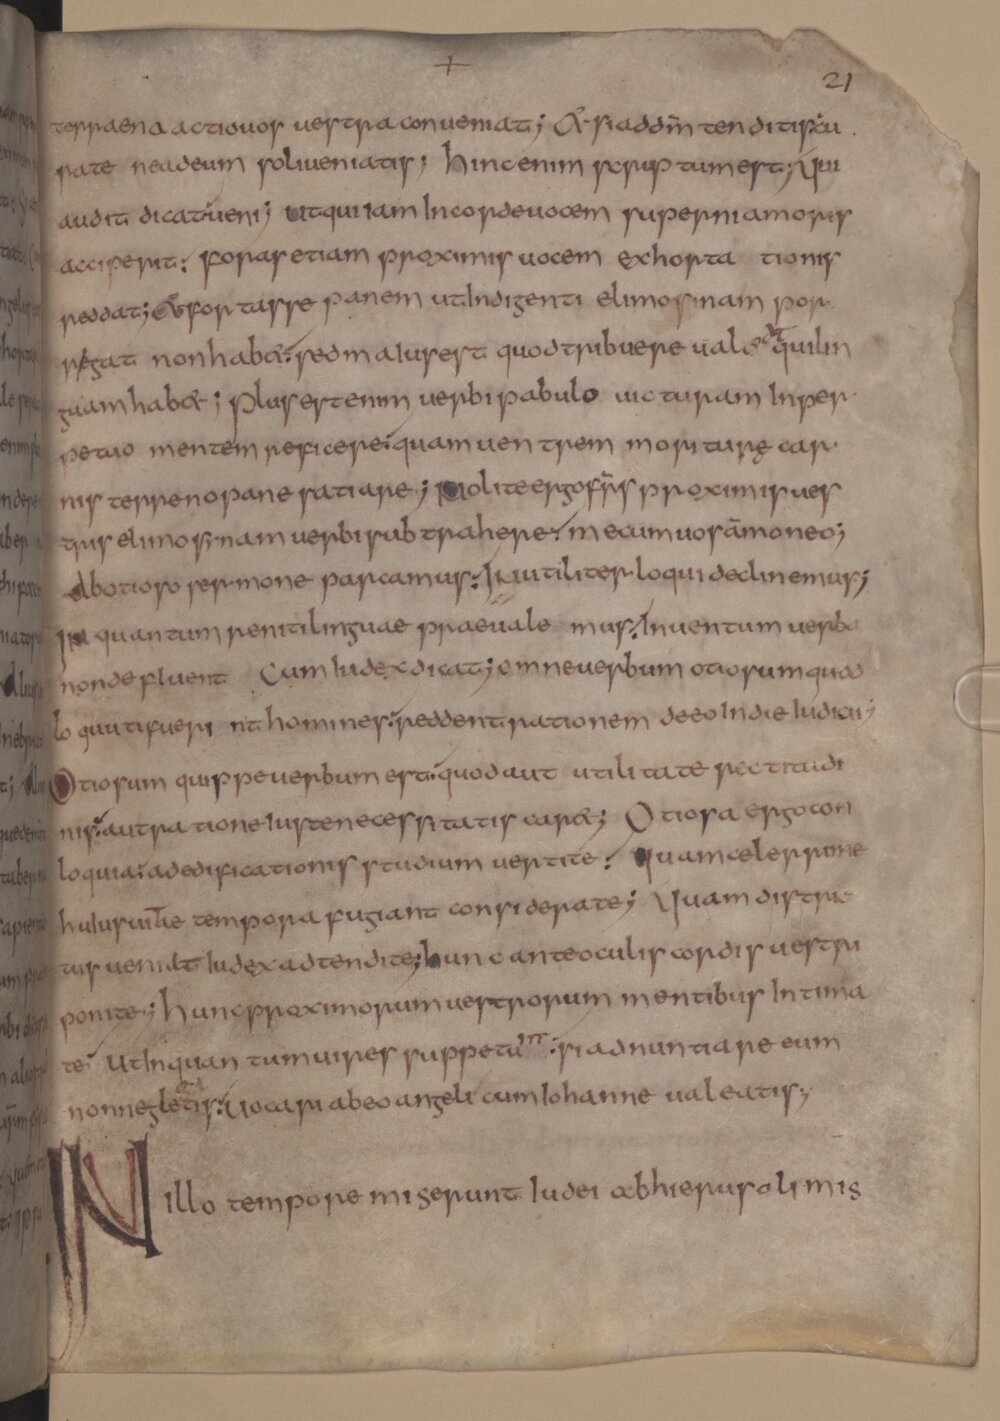 +
21
terraena actio uos ues tra conueniat; & si addm̄ ten ditis cu
rate neadeum soli ueniatis; hinc enim scrip tum est; Qui
audit dicat ueni; ut qui iam In corde uocem superni amoris
acciperit: foras etiam proximis uocem exhorta tionis
reddat; & for tasse panem ut Indigenti elimosinam por
rigat non hab&: sed maius est quod tribuere uale at qui lin
guam hab&; plus est enim uerbi pabulo uic turam In per
petuo mentem reficere: quam uen trem mori turę car
nis terreno pane satiare; Nolite ergo frs̄ proximis ues
tris elimosinam uerbi sub trahere: mecum uos āmoneo;
Ab otioso ser mone parcamus: Inutiliter loqui declinemus;
In quan tum reniti linguae praeuale mus: In uentum uerba
non defluent Cum Iudex dicat; omne uerbum otiosum quod
lo quuti fueri nt homines: reddent rationem de eo In die Iudicii;
Otiosum quippe uerbum est: quod aut utili tate rec titudi
nis: aut ra tione Iuste necessi tatis car&; Otiosa ergo con
loquia: ad edificationis studium uertite: Quam celerrime
huius uitae tempora fugiant considerate; Quam distric
tus ueniat Iudex adtendite; hunc ante oculis cordis uestri
ponite; hunc proximorum uestrorum mentibus Intima
te: ut In quan tum uires suppetunt: si adnuntiare eum
non negletis: uocari ab eo angeli cum Iohanne ual eatis;
IN illo tempore miserunt Iudei ab hierusolimis